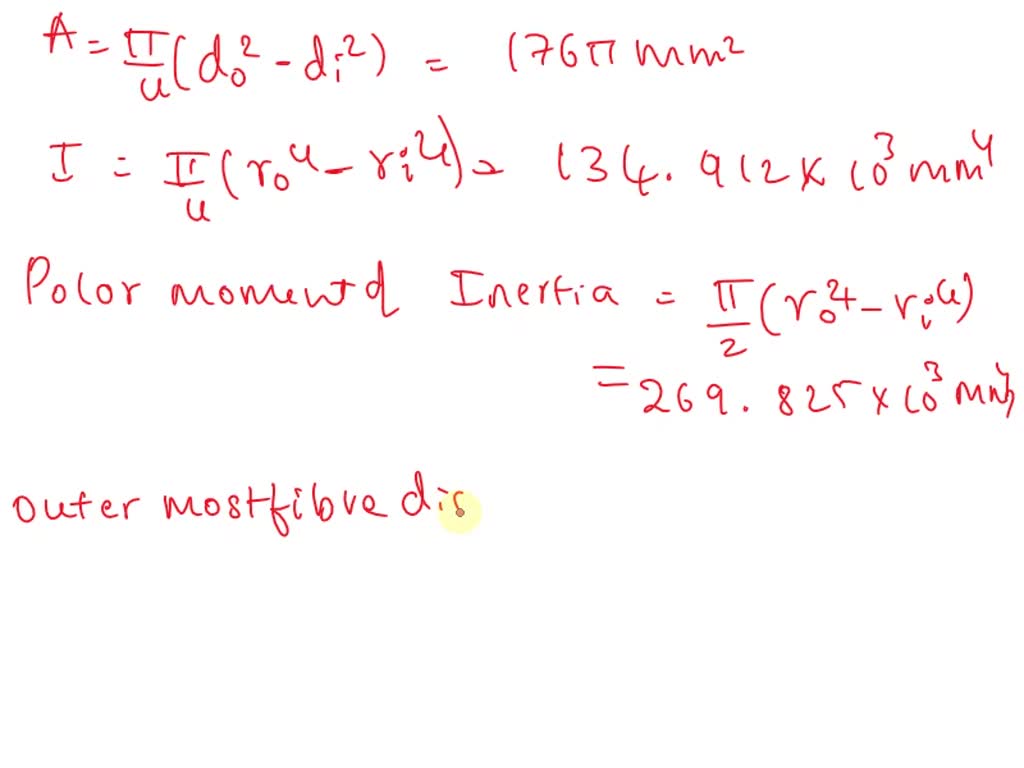 A = π/4 (d₀² - dᵢ²) = 176π mm²
I = π/4 (r₀⁴ - rᵢ⁴) = 134.912 × 10³ mm⁴
Polar moment of Inertia = π/2 (r₀⁴ - rᵢ⁴)
= 269.825 × 10³ mm⁴
outer most fibre dis